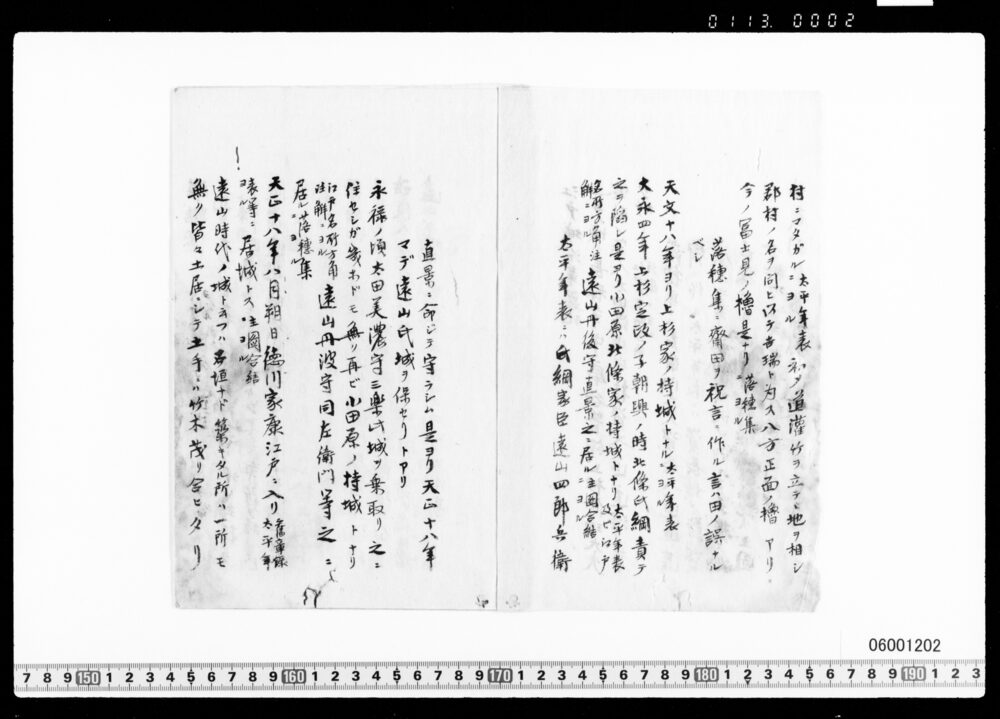 0113.0002
村ニワタガルニ太平年表ニヨル 初メ道灌竹ヲ立テ地ヲ相シ
郡村ノ名ヲ問ヒ以テ吉瑞ト为ス八方正面ノ櫓アリ
今ノ冨士見ノ櫓是ナリ落穂集ニヨル
落穂集ニ齋田ヲ祝言ニ作ル言ハ田ノ誤ナル
ベシ
天文十八年ヨリ上杉家ノ持城トナル太平年表ニヨル
大永四年上杉定政ノ子朝興ノ時北條氏綱責テ
之ヲ陥レ是ヨリ小田原北條家ノ持城トナリ太平年表及ヒ江戸
名所方角注解ニヨル 遠山丹後守直景之ニ居ル主圖合結ニヨル
太平年表ニハ氏綱家臣遠山四郎兵衛
直景ニ命ジテ守ラシム是ヨリ天正十八年
マデ遠山氏城ヲ保セリトアリ
永禄ノ頃太田美濃守三楽此城ヲ乗取リ之ニ
住セシガ幾ホドモ無ク再ビ小田原ノ持城トナリ
江戸名所方角注解ニヨル 遠山丹波守同左衛門等之ニ
居ル落穂集ニヨル
天正十八年八月朔日徳川家康江戸ニ入リ舊章録太平年
表等ニヨル 居城トス主圖合結ニヨル
遠山時代ノ城ト云フハ石垣ナド築キタル所ハ一所モ
無ク皆々土居ニシテ土手ニハ竹木茂リ合ヒタリ
06001202
7 8 9 150 1 2 3 4 5 6 7 8 9 160 1 2 3 4 5 6 7 8 9 170 1 2 3 4 5 6 7 8 9 180 1 2 3 4 5 6 7 8 9 190 1 2 3